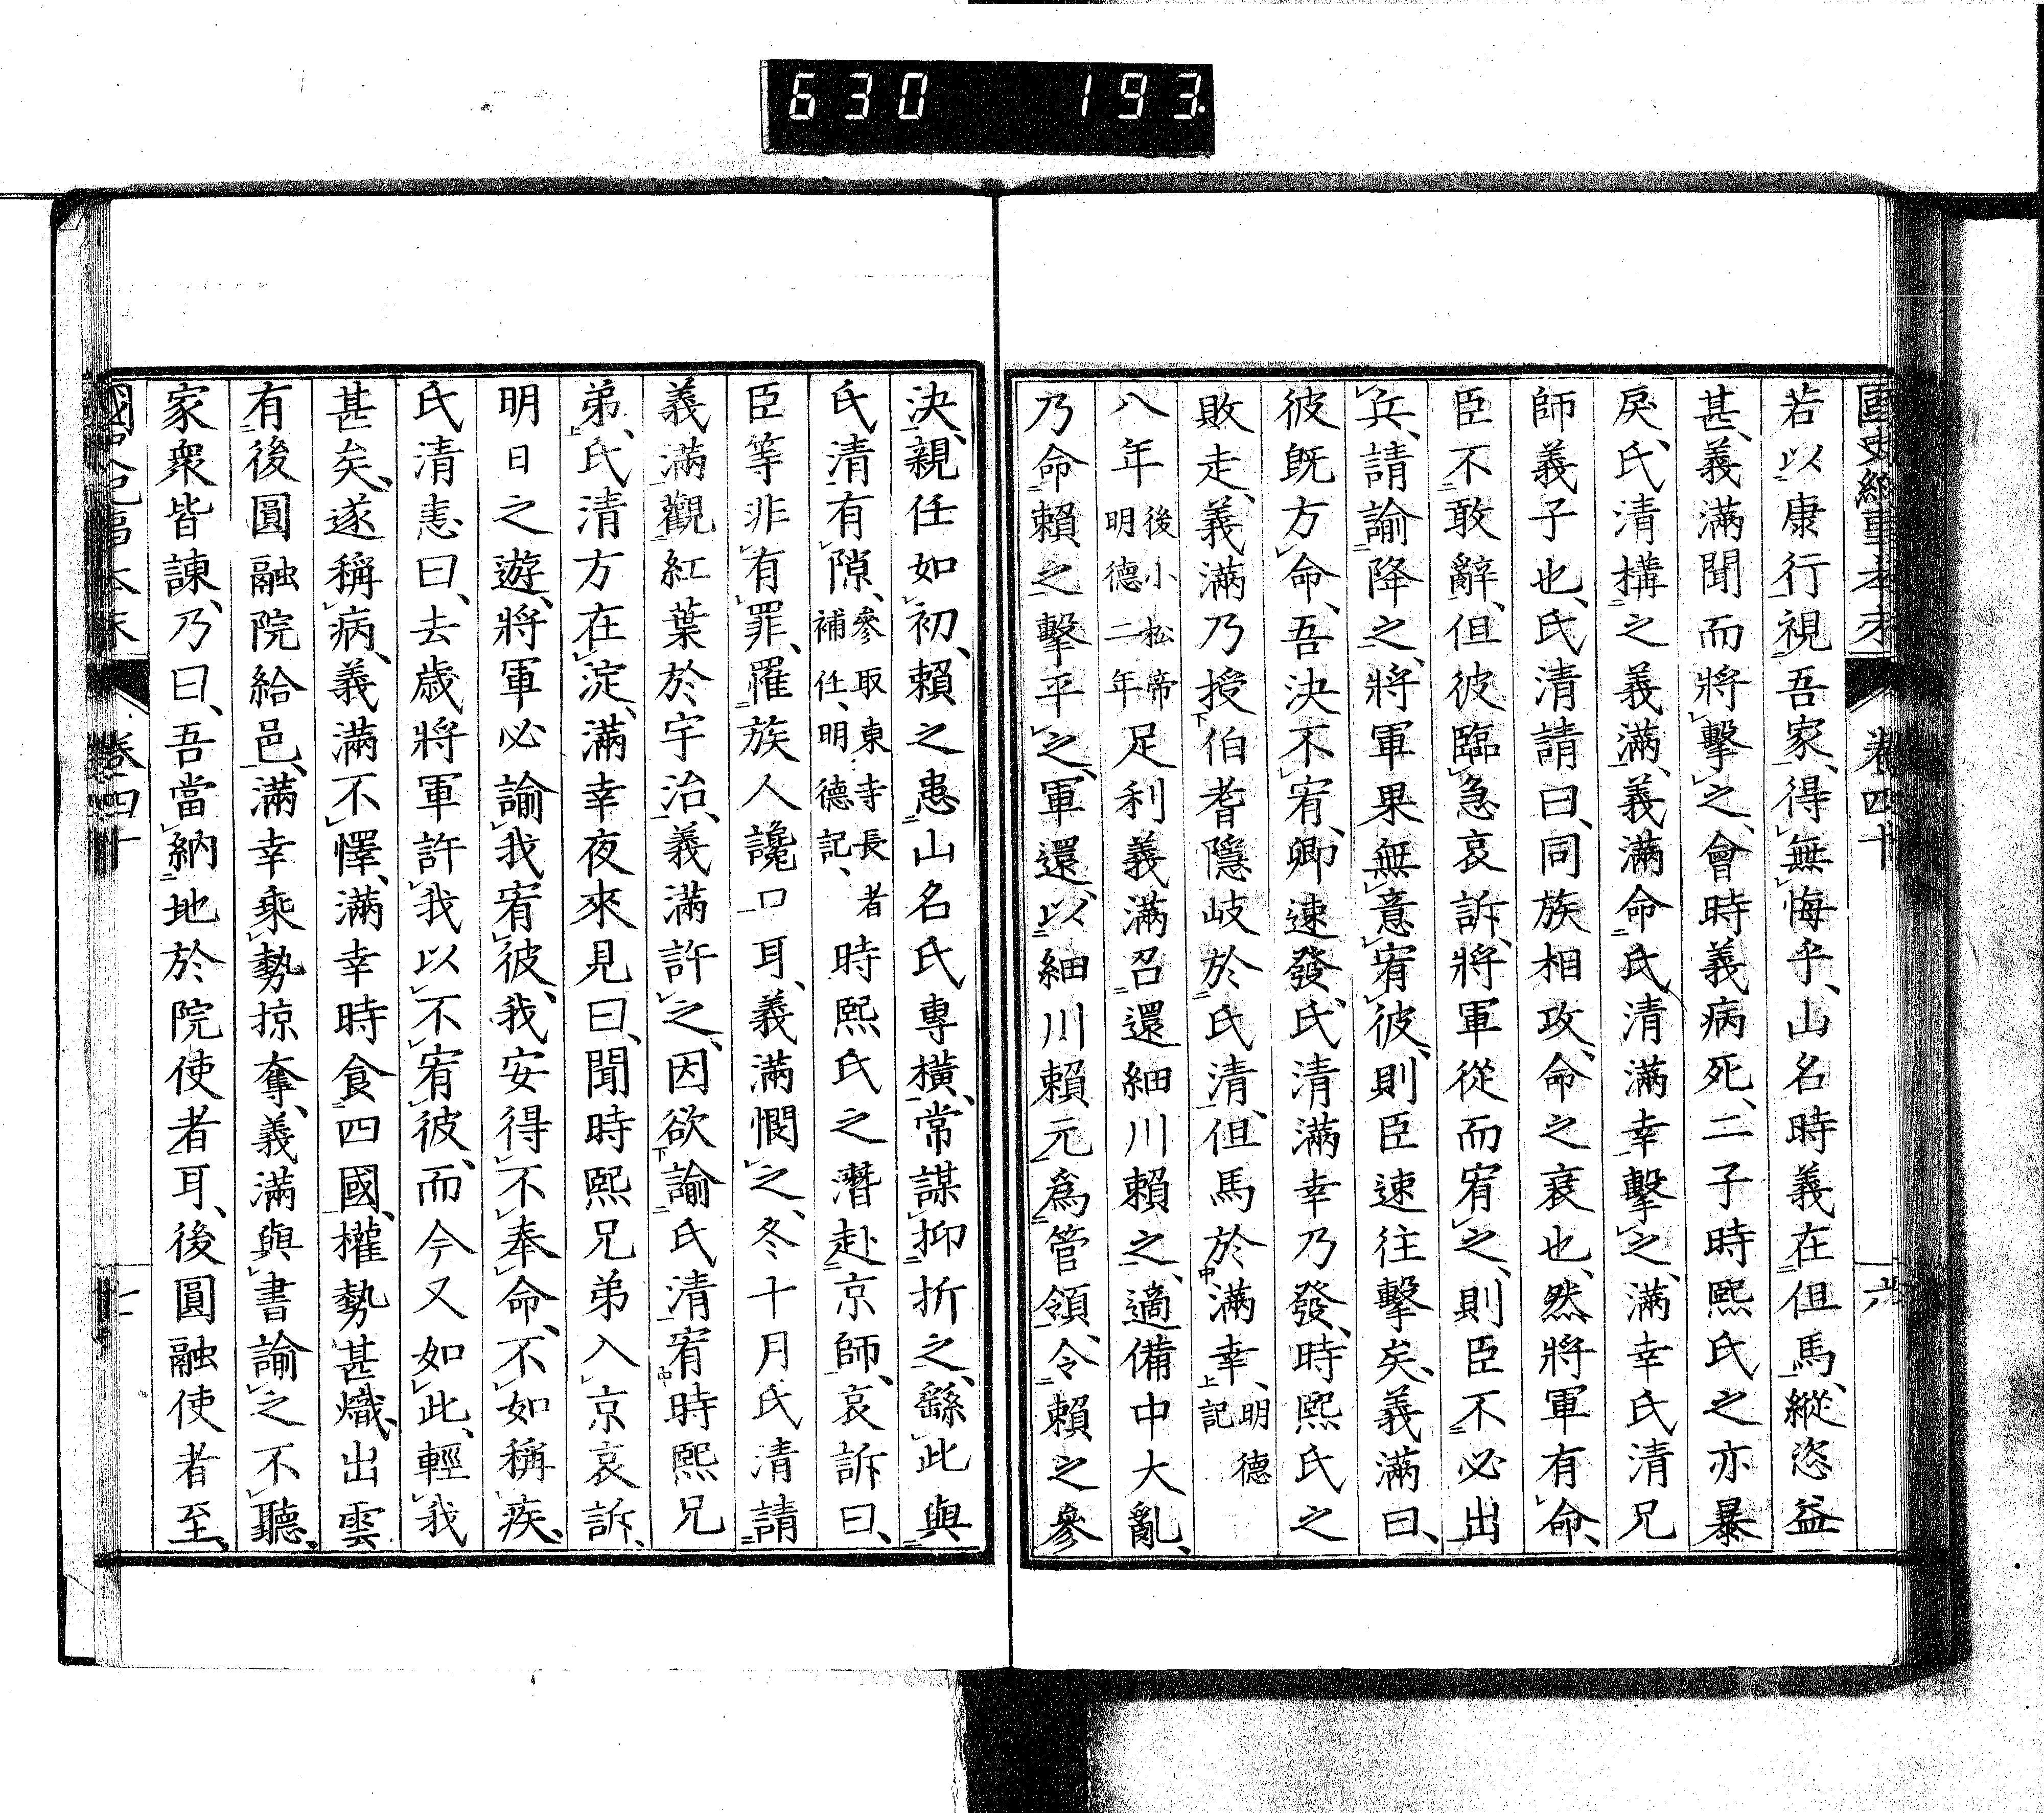 630 193.
國史紀事本末 卷四十 六
若以康行視吾家、得無悔乎、山名時義在但馬、縱恣益
甚、義滿聞而將擊之、會時義病死、二子時熙氏之亦暴
戾、氏清構之義滿、義滿命氏清滿幸擊之、滿幸氏清兄
師義子也、氏清請曰、同族相攻、命之衰也、然將軍有命、
臣不敢辭、但彼臨急哀訴、將軍從而宥之、則臣不必出
兵、請諭降之、將軍果無意宥彼、則臣速往擊矣、義滿曰、
彼既方命、吾決不宥、卿速發、氏清滿幸乃發、時熙氏之
敗走、義滿乃授伯耆隱岐於氏清、但馬於滿幸、明德記
八年後小松帝明德二年足利義滿召還細川賴之、適備中大亂、
乃命賴之擊平之、軍還、以細川賴元爲管領、令賴之參
決、親任如初、賴之患山名氏專橫、常謀抑折之、繇此與
氏清有隙、參取東寺長者補任、明德記、時熙氏之潛赴京師、哀訴曰、
臣等非有罪、罹族人讒口耳、義滿憫之、冬十月氏清請
義滿觀紅葉於宇治、義滿許之、因欲諭氏清宥時熙兄
弟、氏清方在淀、滿幸夜來見曰、聞時熙兄弟入京哀訴、
明日之遊、將軍必諭我宥彼、我安得不奉命、不如稱疾、
氏清恚曰、去歲將軍許我以不宥彼、而今又如此、輕我
甚矣、遂稱病、義滿不懌、滿幸時食四國、權勢甚熾、出雲
有後圓融院給邑、滿幸乘勢掠奪、義滿與書諭之不聽、
家衆皆諫、乃曰、吾當納地於院使者耳、後圓融使者至、
國史紀事本末 卷四十 七